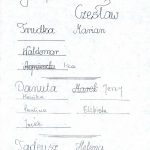 Czesław
Trudka Marian
Waldemar
Agnieszka Iza
Danuta Marek Jerzy
Monika
Paulina Elżbieta
Jacek
Tadeusz Helena